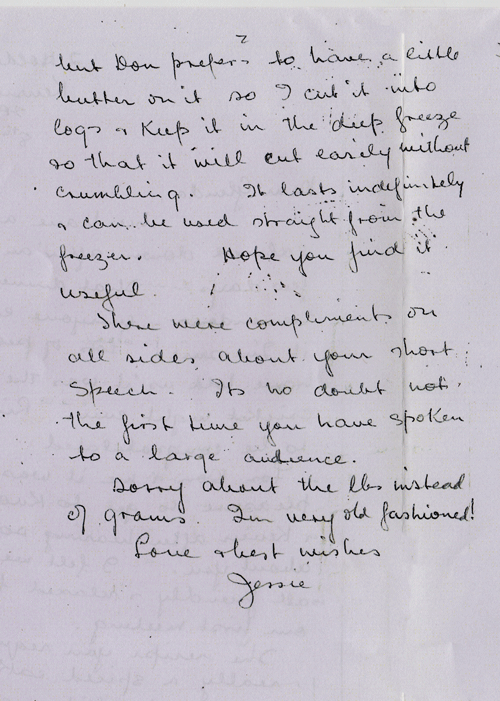 2
but Don prefers to have a little
butter on it so I cut it into
logs & keep it in the deep freeze
so that it will cut easily without
crumbling. It lasts indefinitely
& can be used straight from the
freezer. Hope you find it
useful.
There were compliments on
all sides about your short
speech. Its no doubt not
the first time you have spoken
to a large audience.
Sorry about the lbs instead
of grams. I'm very old fashioned!
Love & best wishes
Jessie